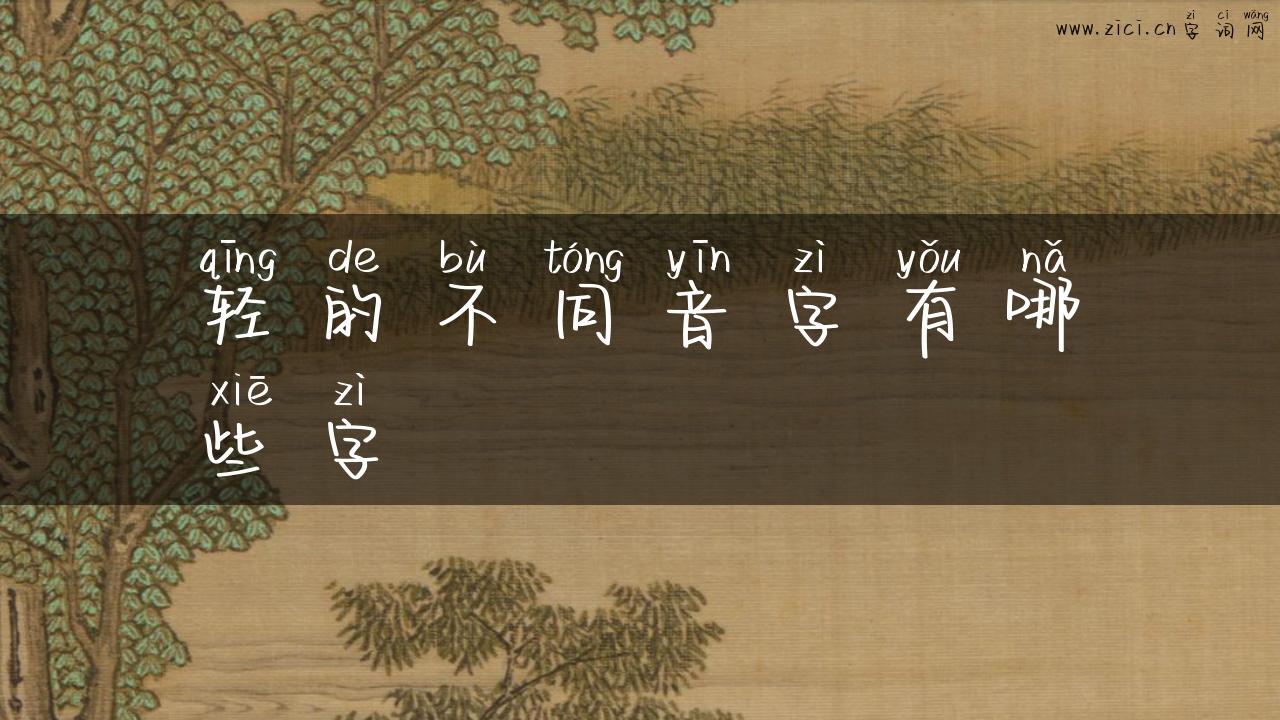 zì cí wǎng
www.zici.cn字词网
qīng de bù tóng yīn zì yǒu nǎ
轻的不同音字有哪
xiē zì
些字